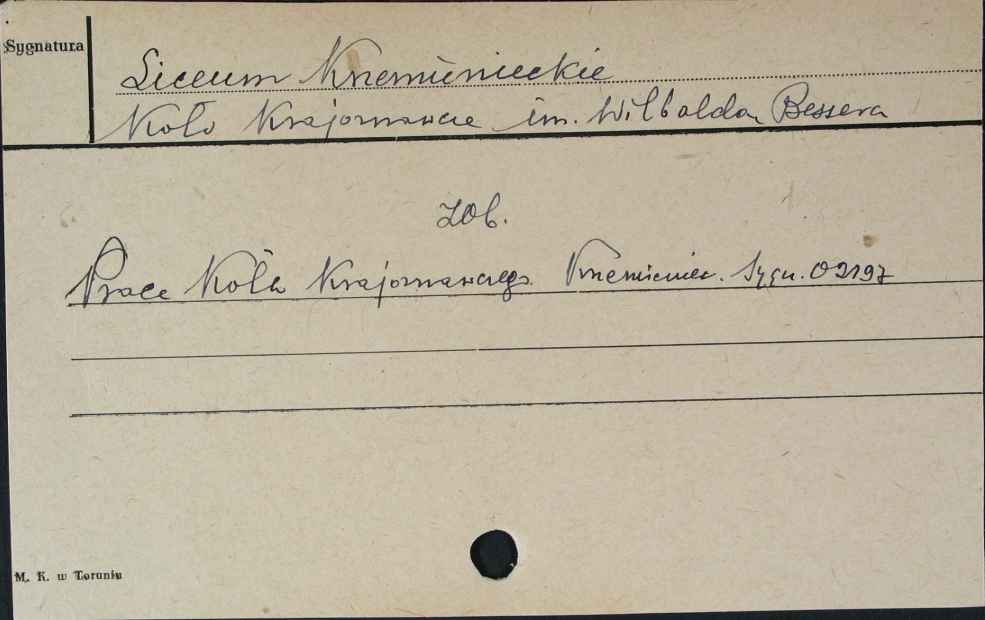 Sygnatura
Liceum Krzemienieckie
Koło Krajoznawcze im. Wilbalda Bessera
Zob.
Prace Koła Krajoznawczego. Krzemieniec. Sygn. 02197
M. K. w Toruniu